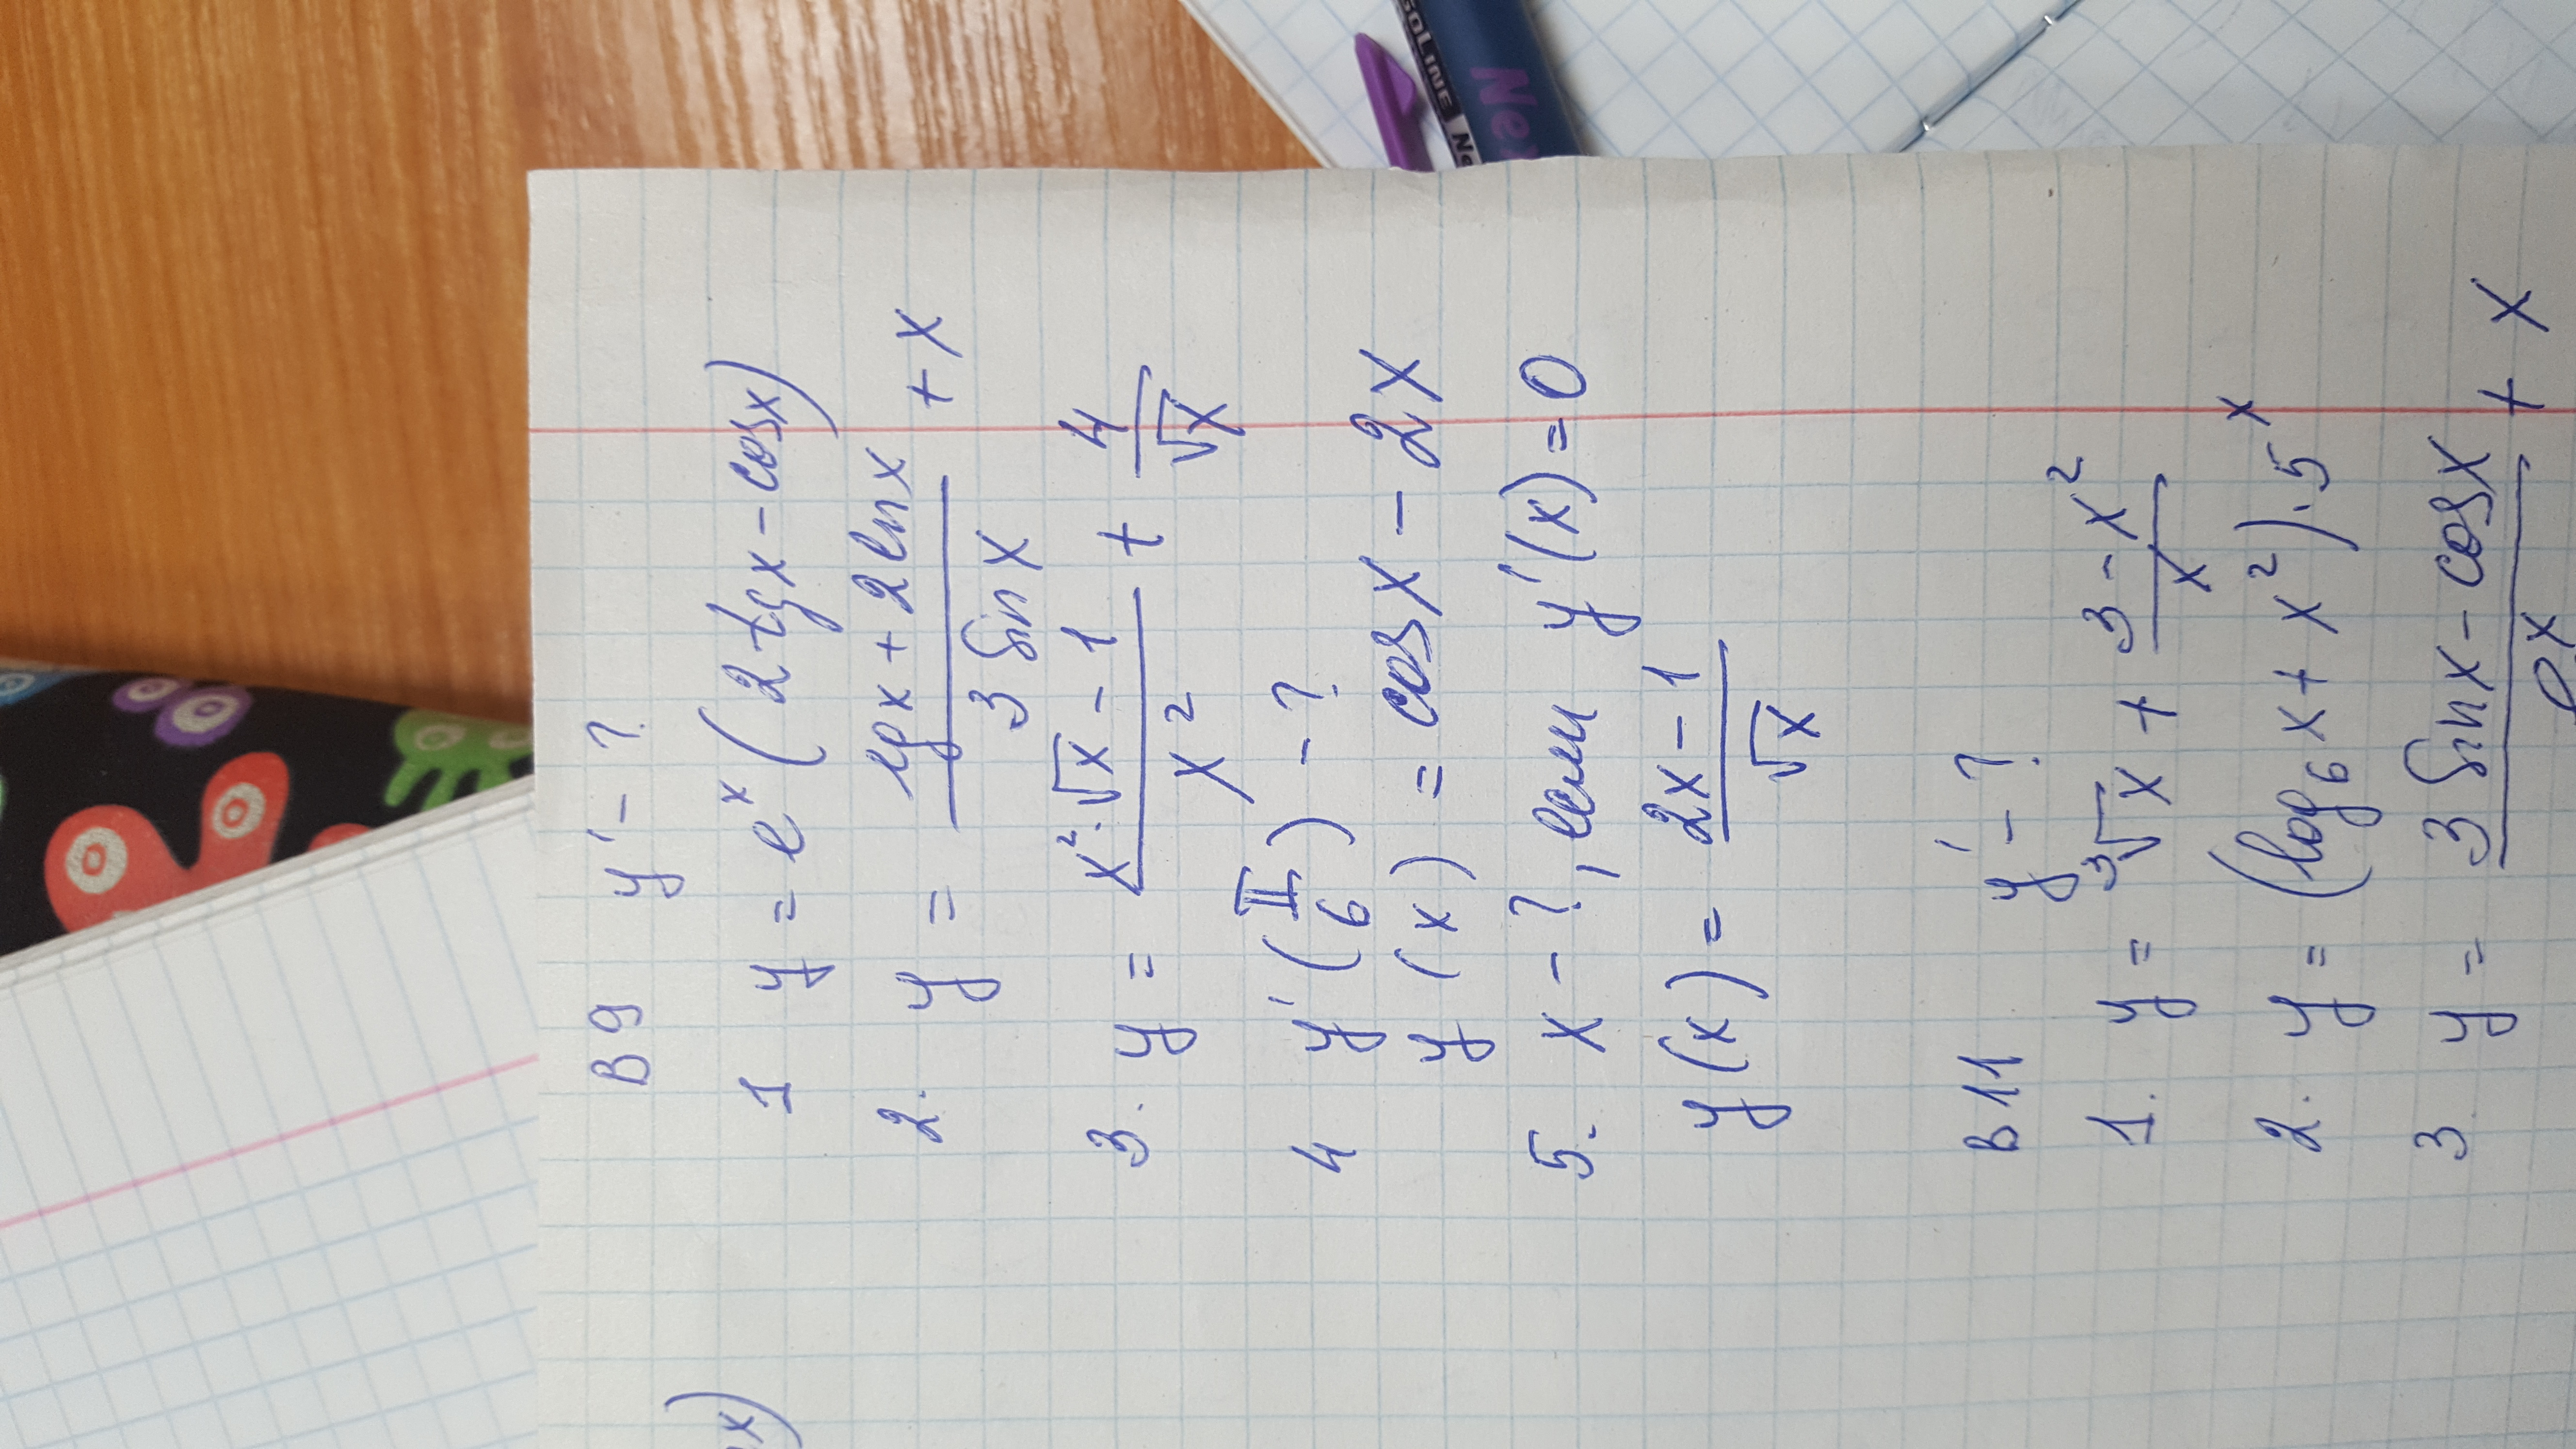 В9 y' - ?
1 y = e^x (2 tgx - cosx)
2. y = \frac{lgx + 2lnx}{3 sin x} + x
3. y = \frac{x^2·√x - 1}{x^2} + \frac{4}{√x}
4 y'(\frac{π}{6}) - ?
y(x) = cosx - 2x
5. x - ?, если y'(x)=0
y(x) = \frac{2x - 1}{√x}
В11 y' - ?
1. y = ∛x + \frac{3 - x^2}{x}
2. y = (log_6 x + x^2)·5^x
3. y = \frac{3 sinx - cosx}{e^x} + x
x)
SOLINE
Ne